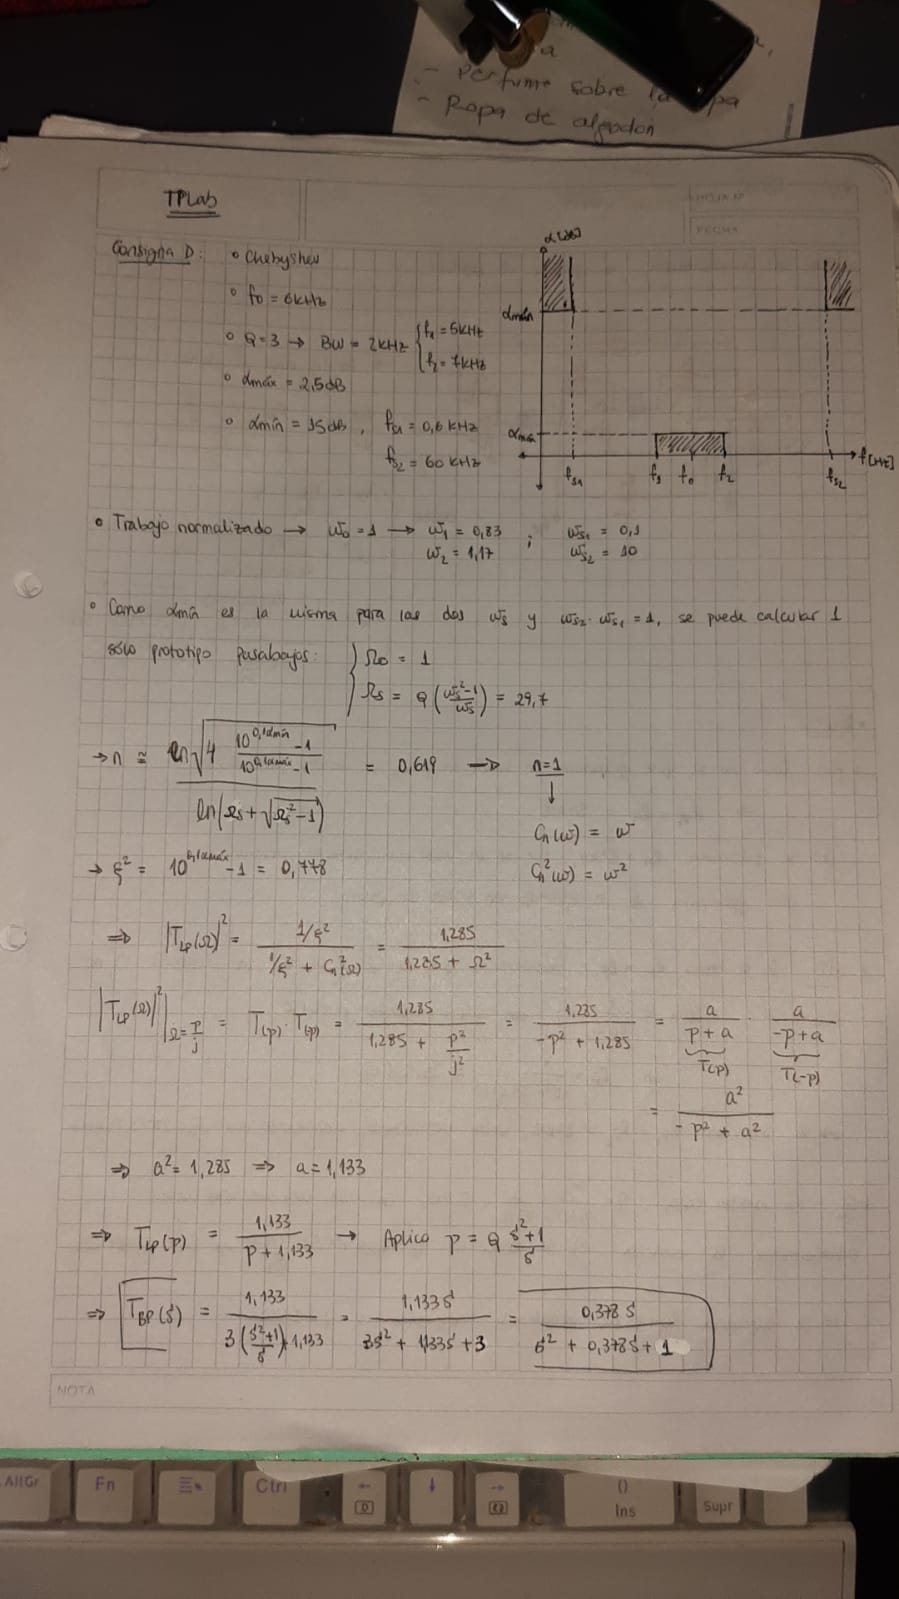 - Perfume sobre la
- Ropa de algodón
TPLab
HOJA Nº
FECHA
Consigna D:
• Chebyshev
• f0 = 6kHz
• Q=3 → BW = 2kHz { f1 = 5kHz
f2 = 7kHz
• αmáx = 2,5dB
• αmín = 15dB, fs1 = 0,6 kHz
fs2 = 60 kHz
α [dB]
αmín
αmáx
fs1 f1 f0 f2 fs2 f[Hz]
• Trabajo normalizado → ω0 = 1 → ω1 = 0,83 ; ωs1 = 0,1
ω2 = 1,17 ωs2 = 10
• Como αmín es la misma para las dos ωs y ωs2 · ωs1 = 1, se puede calcular 1
sólo prototipo pasabajos: { Ω0 = 1
Ωs = Q ((ωs²-1)/ωs) = 29,7
→ n ≅ ln√(4 (10^(0,1αmín) -1)/(10^(0,1αmáx) -1)) / ln(Ωs + √(Ωs² -1)) = 0,619 → n=1
↓
Cn(ω) = ω
→ ξ² = 10^(0,1αmáx) -1 = 0,778
Cn²(ω) = ω²
⇒ |TLP(Ω)|² = (1/ξ²) / (1/ξ² + Cn²(Ω)) = 1,285 / (1,285 + Ω²)
|TLP(Ω)|²|Ω=p/j = T(p) · T(-p) = 1,285 / (1,285 + p²/j²) = 1,285 / (-p² + 1,285) = a/(p+a) · a/(-p+a)
T(p) T(-p)
= a² / (-p² + a²)
⇒ a² = 1,285 ⇒ a = 1,133
⇒ TLP(p) = 1,133 / (p + 1,133) → Aplico p = Q (s²+1)/s
⇒ TBP(s) = 1,133 / (3((s²+1)/s)+1,133) = 1,133s / (3s² + 1,133s + 3) = 0,378 s / (s² + 0,378s + 1)
NOTA
AltGr
Fn
Ctrl
←
↓
→
()
Ins
Supr